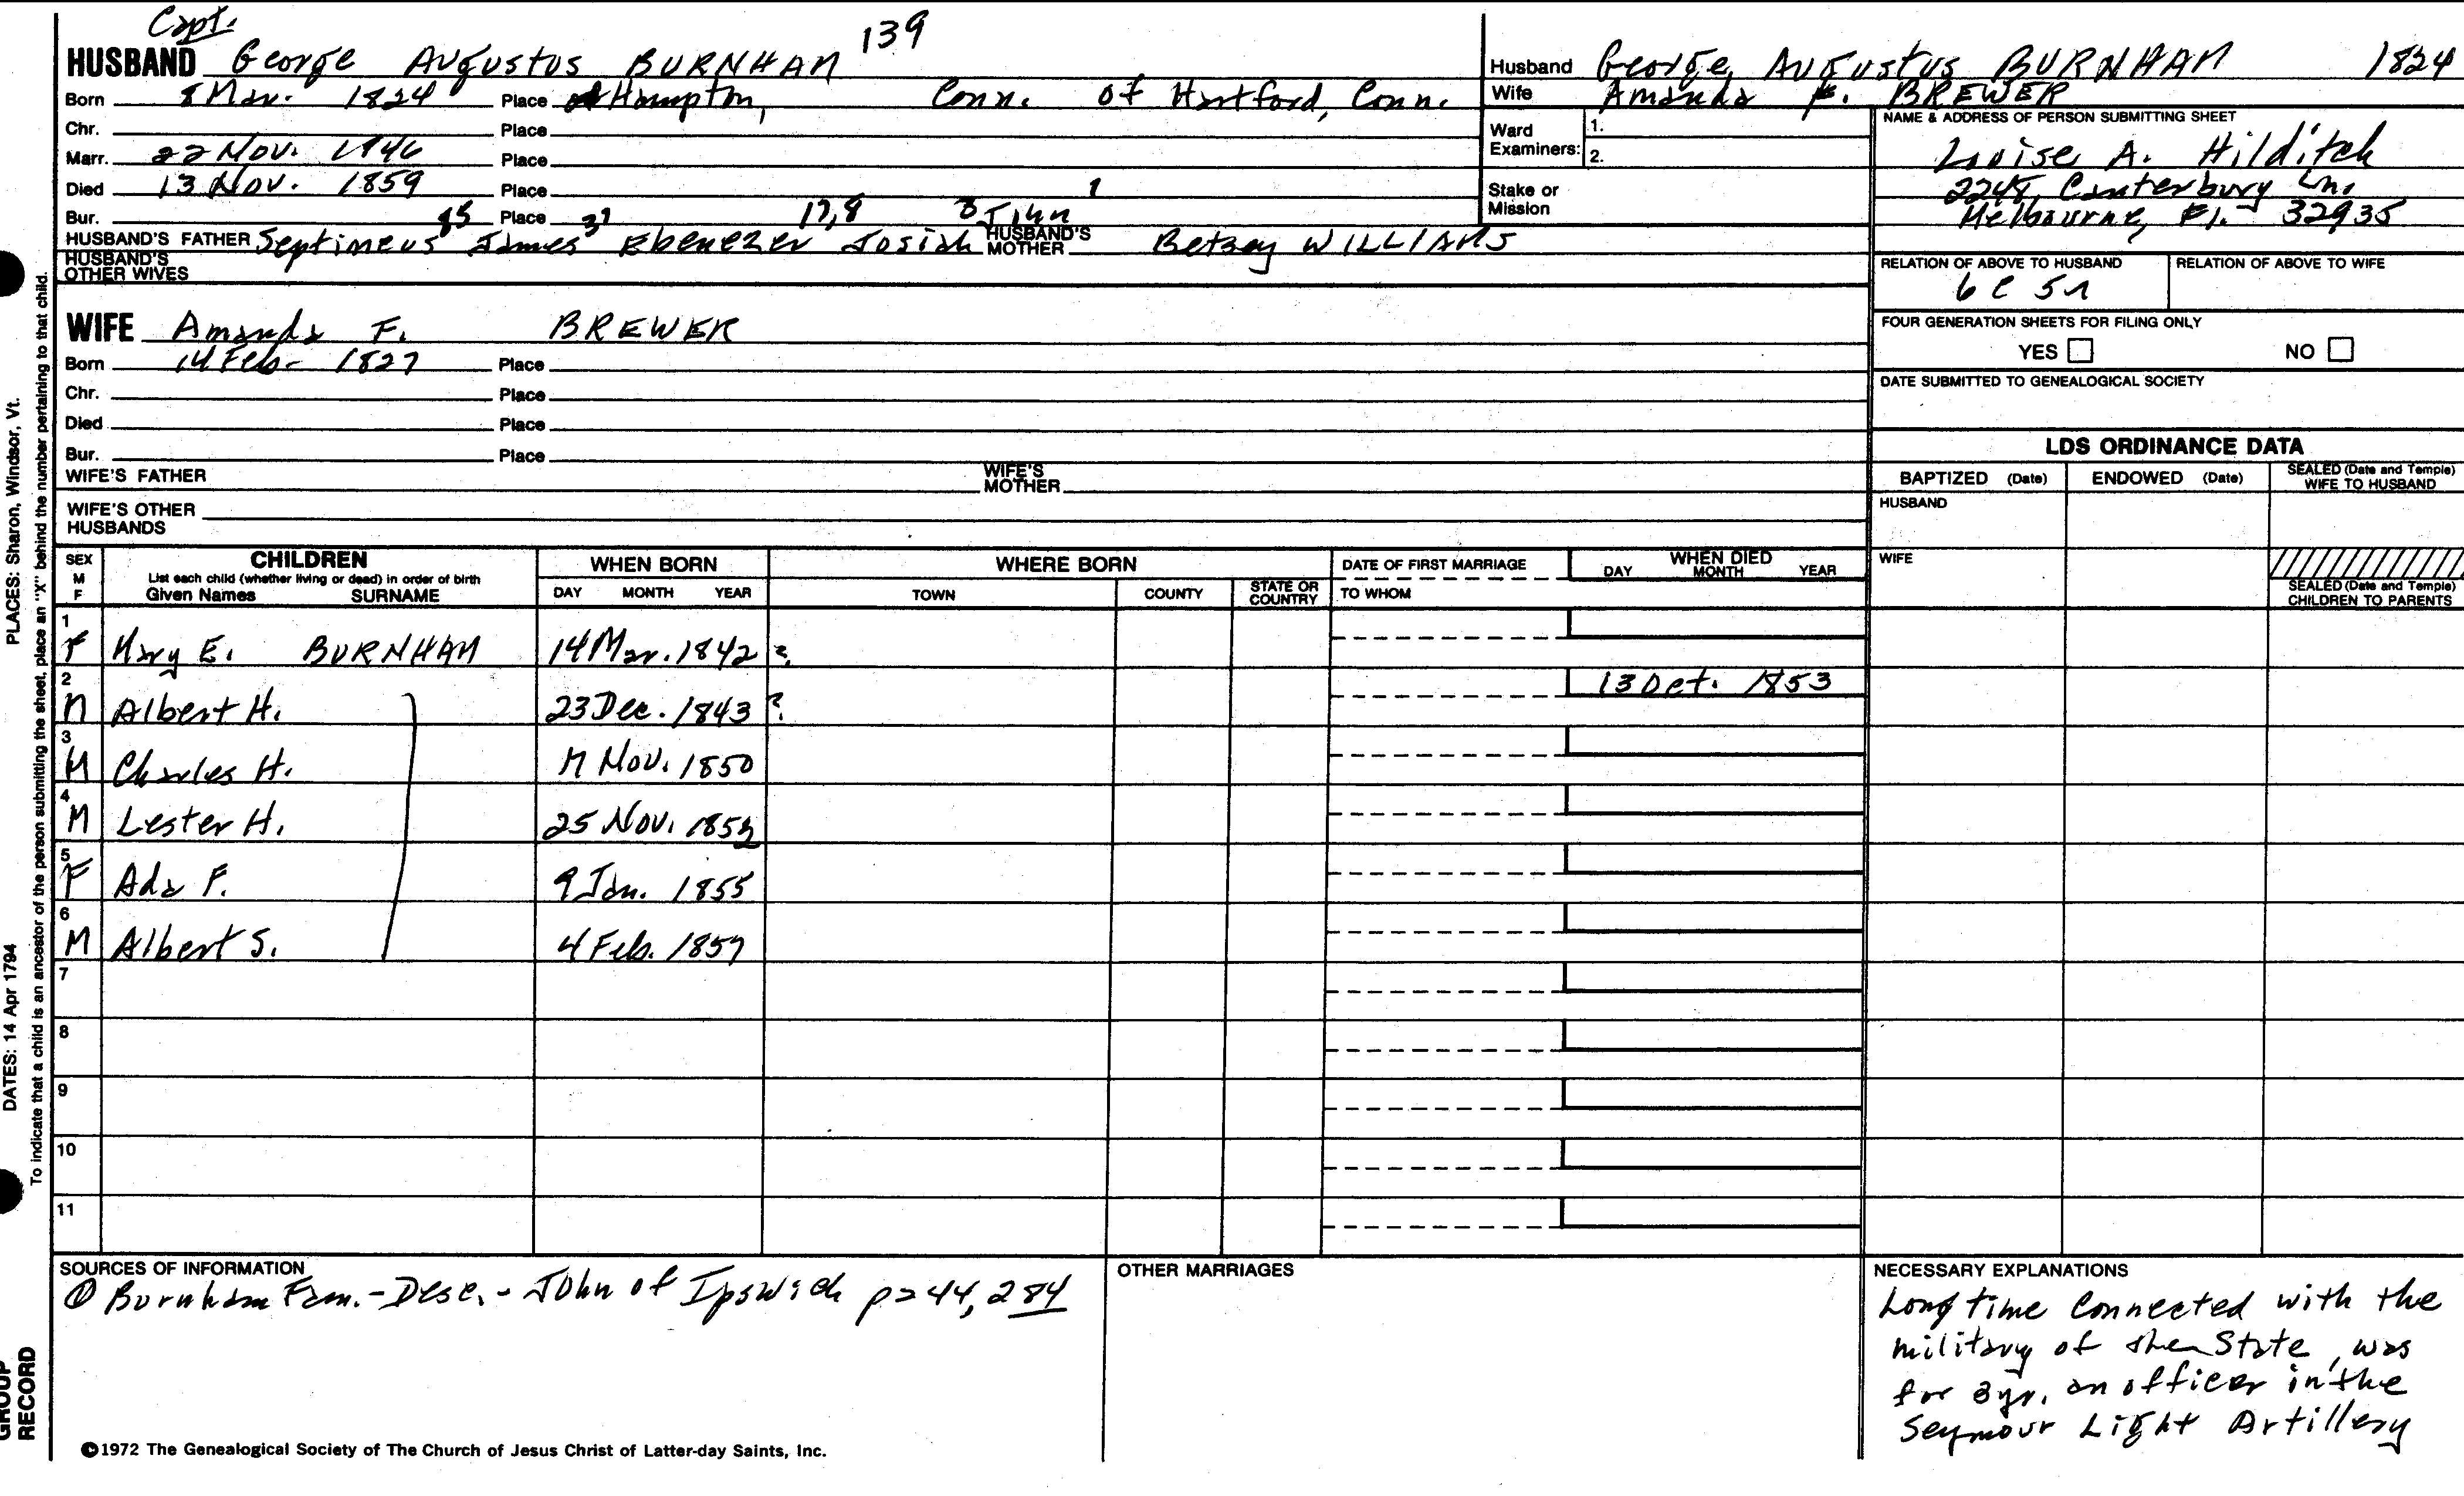 Capt. 139
HUSBAND George Augustus BURNHAM
Born 8 Mar. 1824 Place Hampton, Conn. of Hartford, Conn.
Chr. Place
Marr. 22 Nov. 1846 Place
Died 13 Nov. 1859 Place 1
Bur. 85 Place 31 17,8 3 John
HUSBAND'S FATHER Septimeus James Ebenezer Josiah HUSBAND'S MOTHER Betsey WILLIAMS
HUSBAND'S OTHER WIVES
WIFE Amanda F. BREWER
Born 14 Feb- 1827 Place
Chr. Place
Died Place
Bur. Place
WIFE'S FATHER WIFE'S MOTHER
WIFE'S OTHER HUSBANDS
Husband George Augustus BURNHAM 1824
Wife Amanda F. BREWER
Ward Examiners: 1.
2.
Stake or Mission
NAME & ADDRESS OF PERSON SUBMITTING SHEET
Louise A. Hilditch
2248 Canterbury Ln.
Melbourne, Fl. 32935
RELATION OF ABOVE TO HUSBAND RELATION OF ABOVE TO WIFE
6 C 5 r
FOUR GENERATION SHEETS FOR FILING ONLY
YES NO
DATE SUBMITTED TO GENEALOGICAL SOCIETY
LDS ORDINANCE DATA
BAPTIZED (Date) ENDOWED (Date) SEALED (Date and Temple) WIFE TO HUSBAND
HUSBAND
WIFE
SEALED (Date and Temple) CHILDREN TO PARENTS
SEX M F CHILDREN WHEN BORN WHERE BORN DATE OF FIRST MARRIAGE WHEN DIED
List each child (whether living or dead) in order of birth
Given Names SURNAME DAY MONTH YEAR TOWN COUNTY STATE OR COUNTRY TO WHOM DAY MONTH YEAR
1 F Mary E. BURNHAM 14 Mar. 1842 ?
2 M Albert H. 23 Dec. 1843 ? 13 Oct. 1853
3 M Charles H. 17 Nov. 1850
4 M Lester H. 25 Nov. 1852
5 F Ada F. 9 Jan. 1855
6 M Albert S. 4 Feb. 1857
7
8
9
10
11
SOURCES OF INFORMATION
① Burnham Fam. - Desc. - John of Ipswich p 244, 284
OTHER MARRIAGES
NECESSARY EXPLANATIONS
Long time connected with the
military of the State, was
for 3 yr. an officer in the
Seymour Light Artillery
©1972 The Genealogical Society of The Church of Jesus Christ of Latter-day Saints, Inc.
PLACES: Sharon, Windsor, Vt.
DATES: 14 Apr 1794
To indicate that a child is an ancestor of the person submitting the sheet, place an "X" behind the number pertaining to that child.
GROUP
RECORD